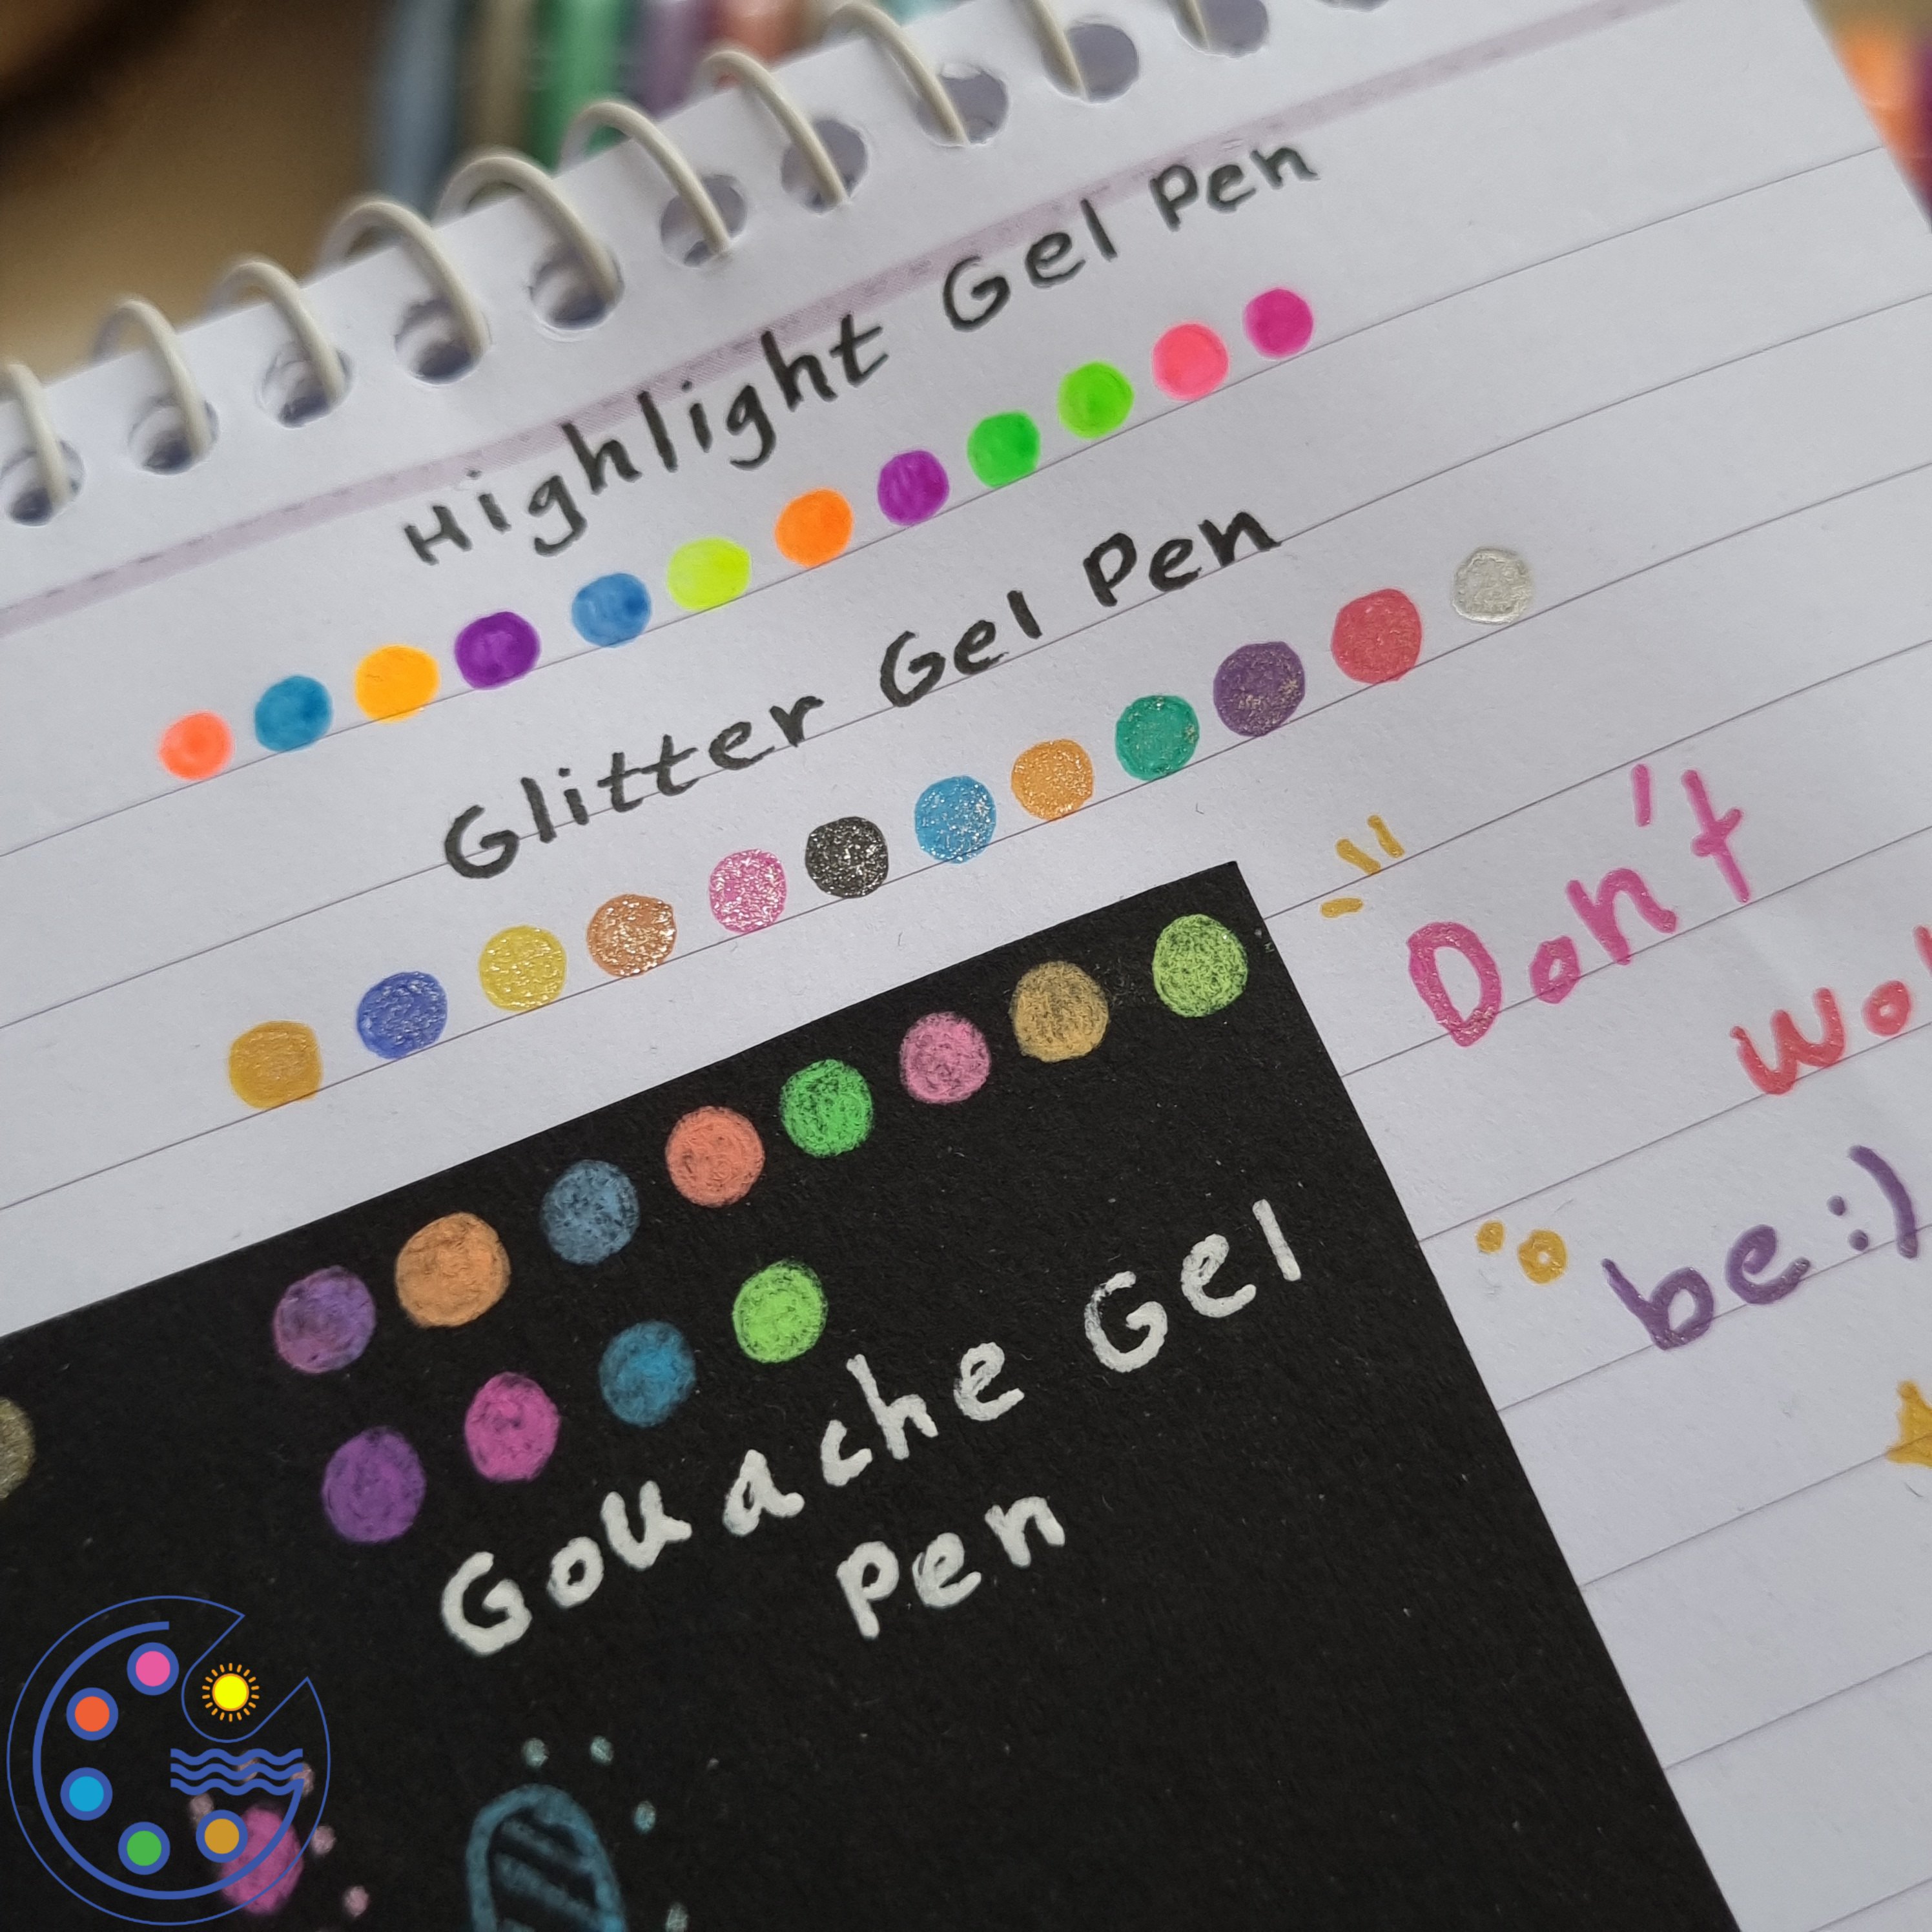 Highlight Gel Pen
Glitter Gel Pen
Don't
be :)
Gouache Gel
Pen